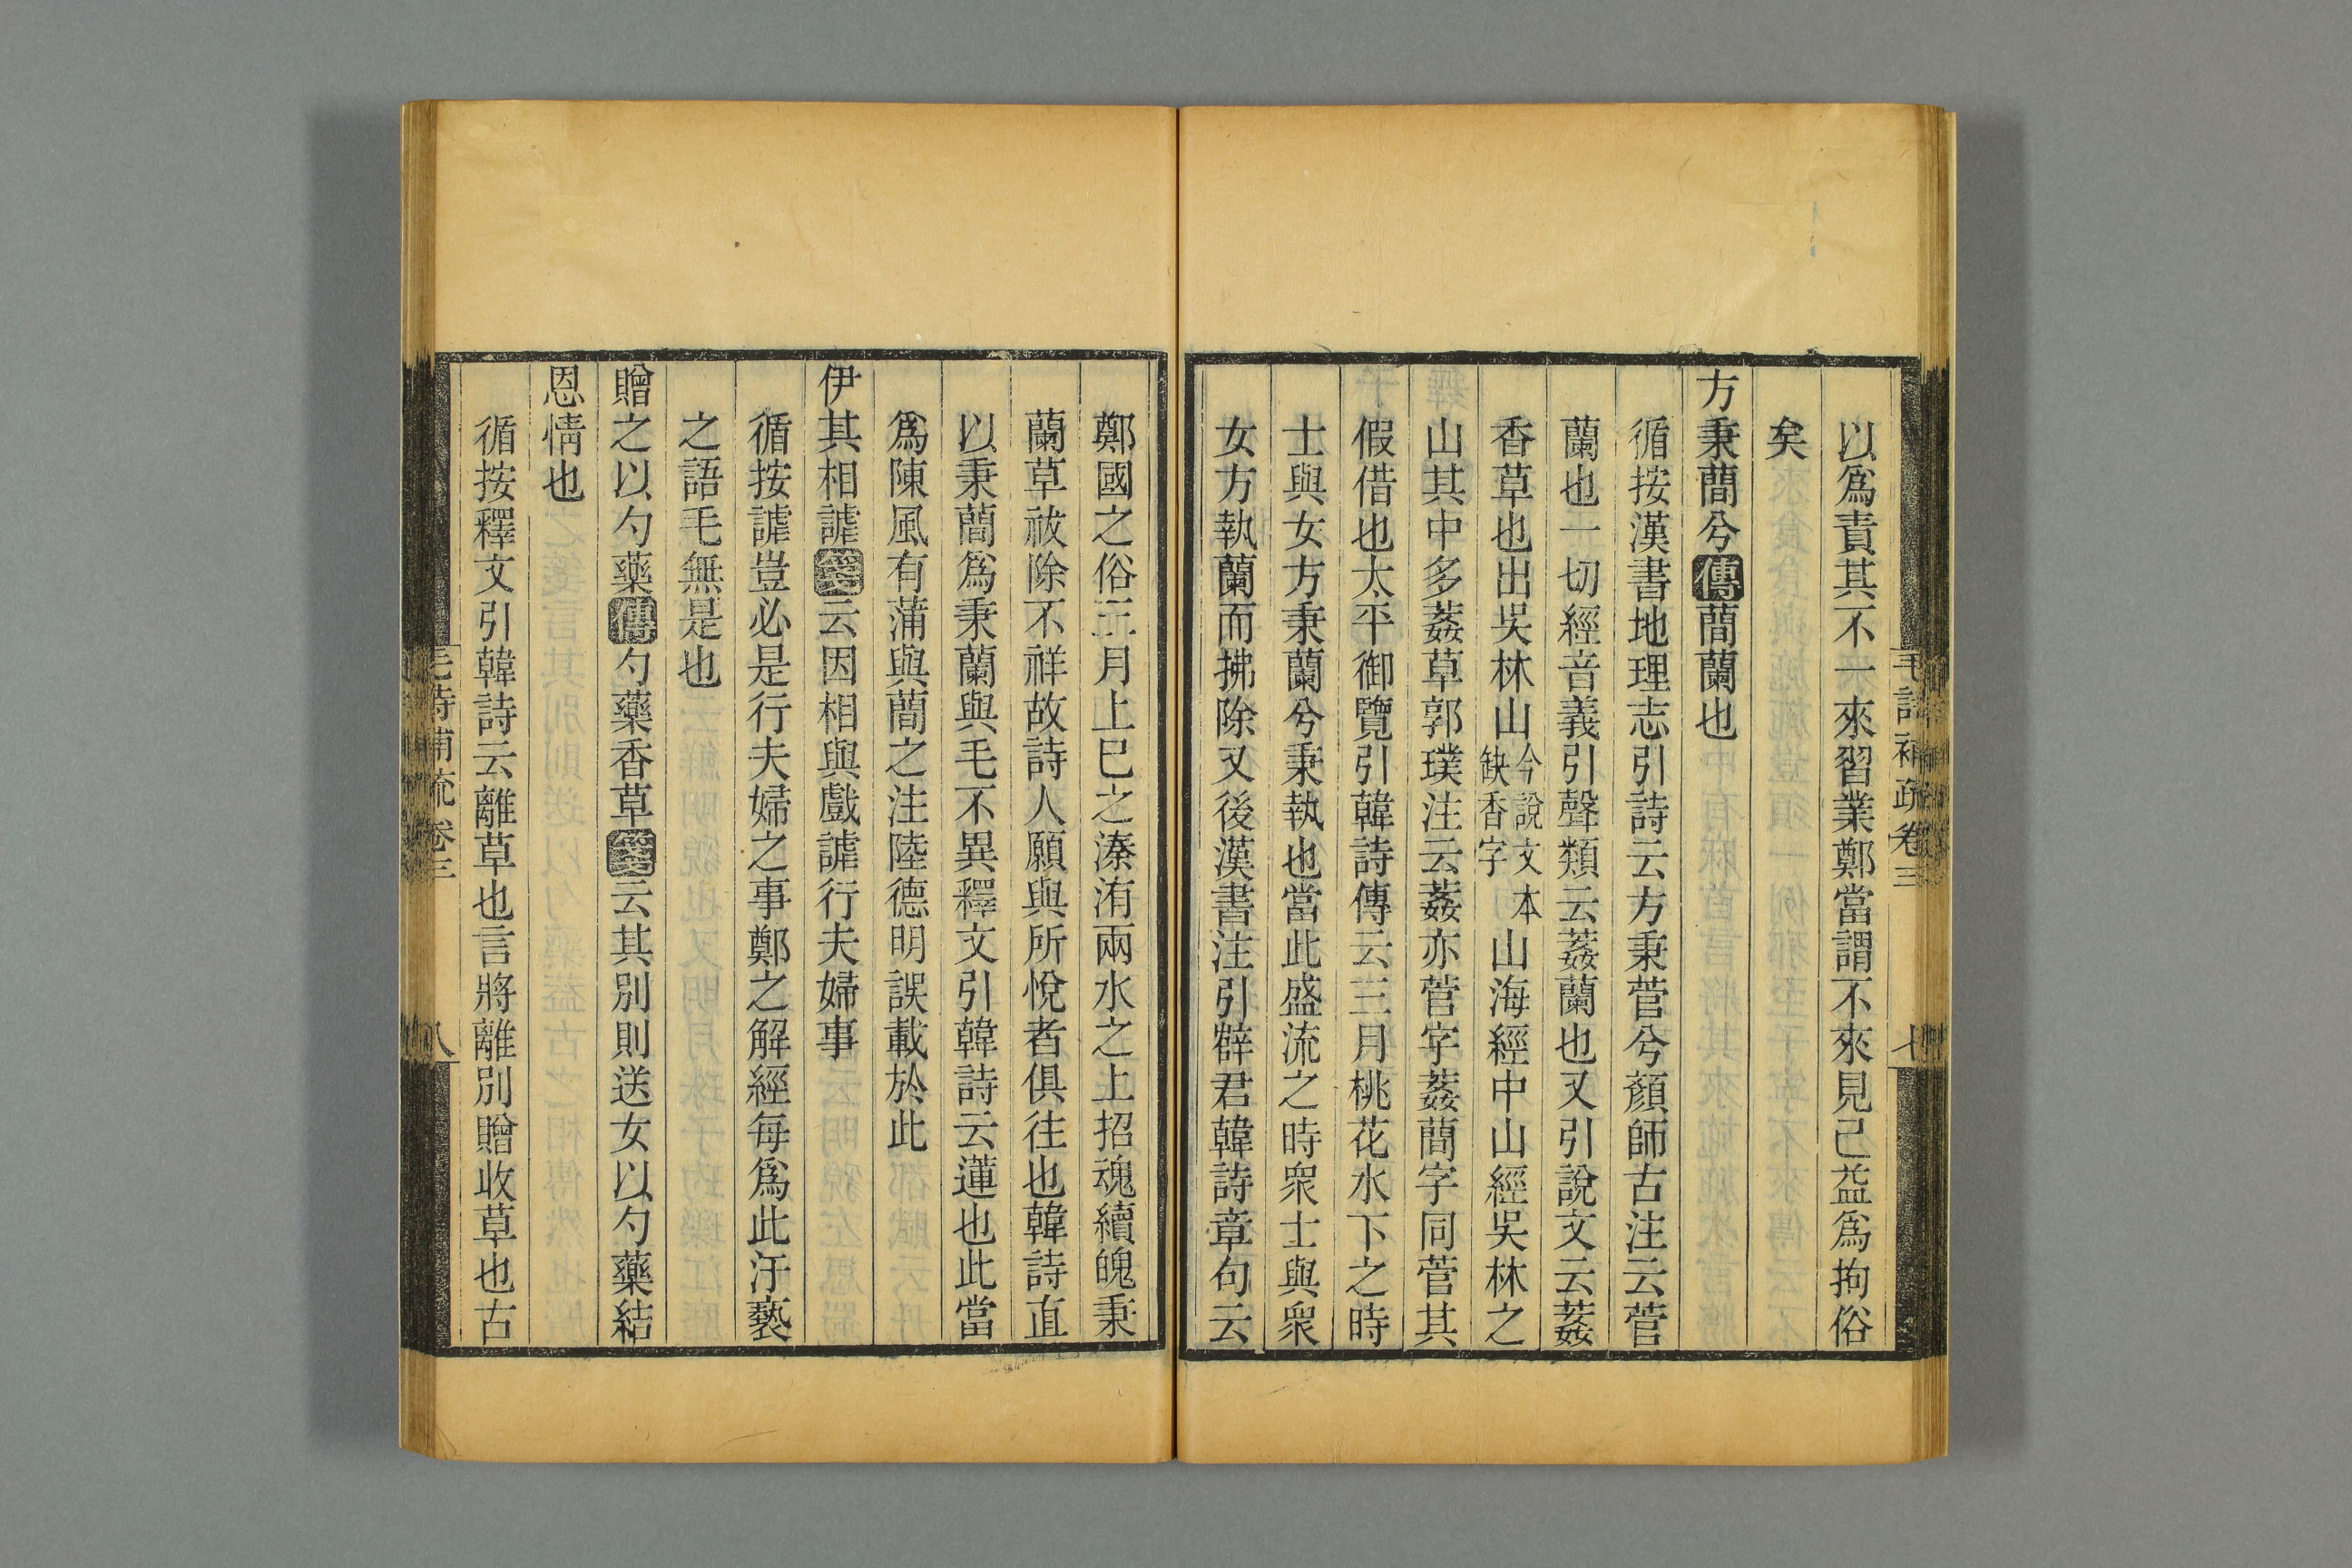 毛詩補疏卷三
七
以爲責其不一來習業鄭當謂不來見己益爲拘俗
矣
方秉蕳兮傳蕳蘭也
循按漢書地理志引詩云方秉菅兮顏師古注云菅
蘭也一切經音義引聲類云葌蘭也又引說文云葌
香草也出吳林山今說文本缺香字山海經中山經吳林之
山其中多葌草郭璞注云葌亦菅字葌蕳字同菅其
假借也太平御覽引韓詩傳云三月桃花水下之時
士與女方秉蘭兮秉執也當此盛流之時衆士與衆
女方執蘭而拂除又後漢書注引薛君韓詩章句云
鄭國之俗三月上巳之溱洧兩水之上招魂續魄秉
蘭草祓除不祥故詩人願與所悅者俱往也韓詩直
以秉蕳爲秉蘭與毛不異釋文引韓詩云蓮也此當
爲陳風有蒲與蕳之注陸德明誤載於此
伊其相謔箋云因相與戲謔行夫婦事
循按謔豈必是行夫婦之事鄭之解經每爲此汙褻
之語毛無是也
贈之以勺藥傳勺藥香草箋云其別則送女以勺藥結
恩情也
循按釋文引韓詩云離草也言將離別贈收草也古
毛詩補疏卷三
八